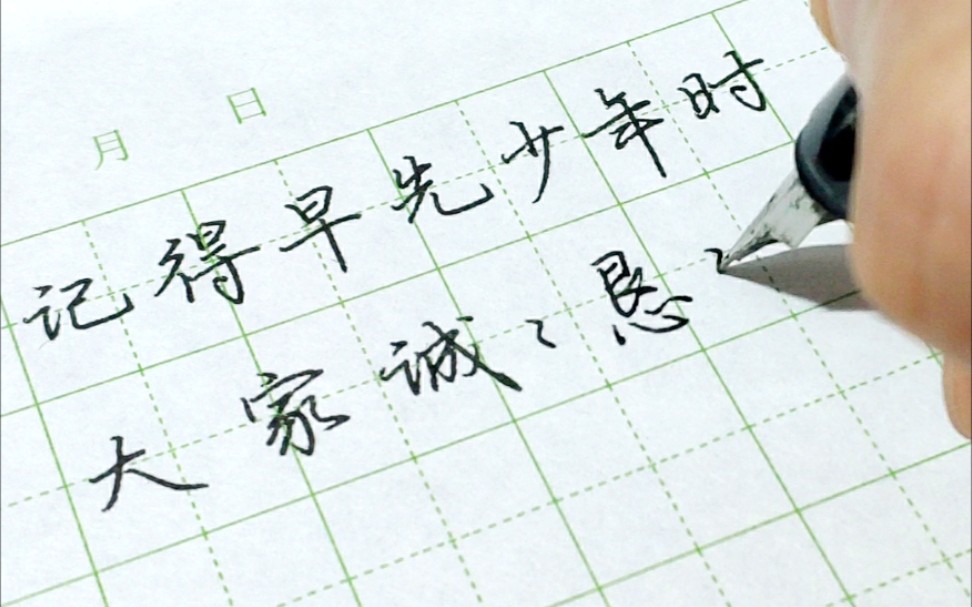 月 日
记得早先少年时
大家诚〻恳〻